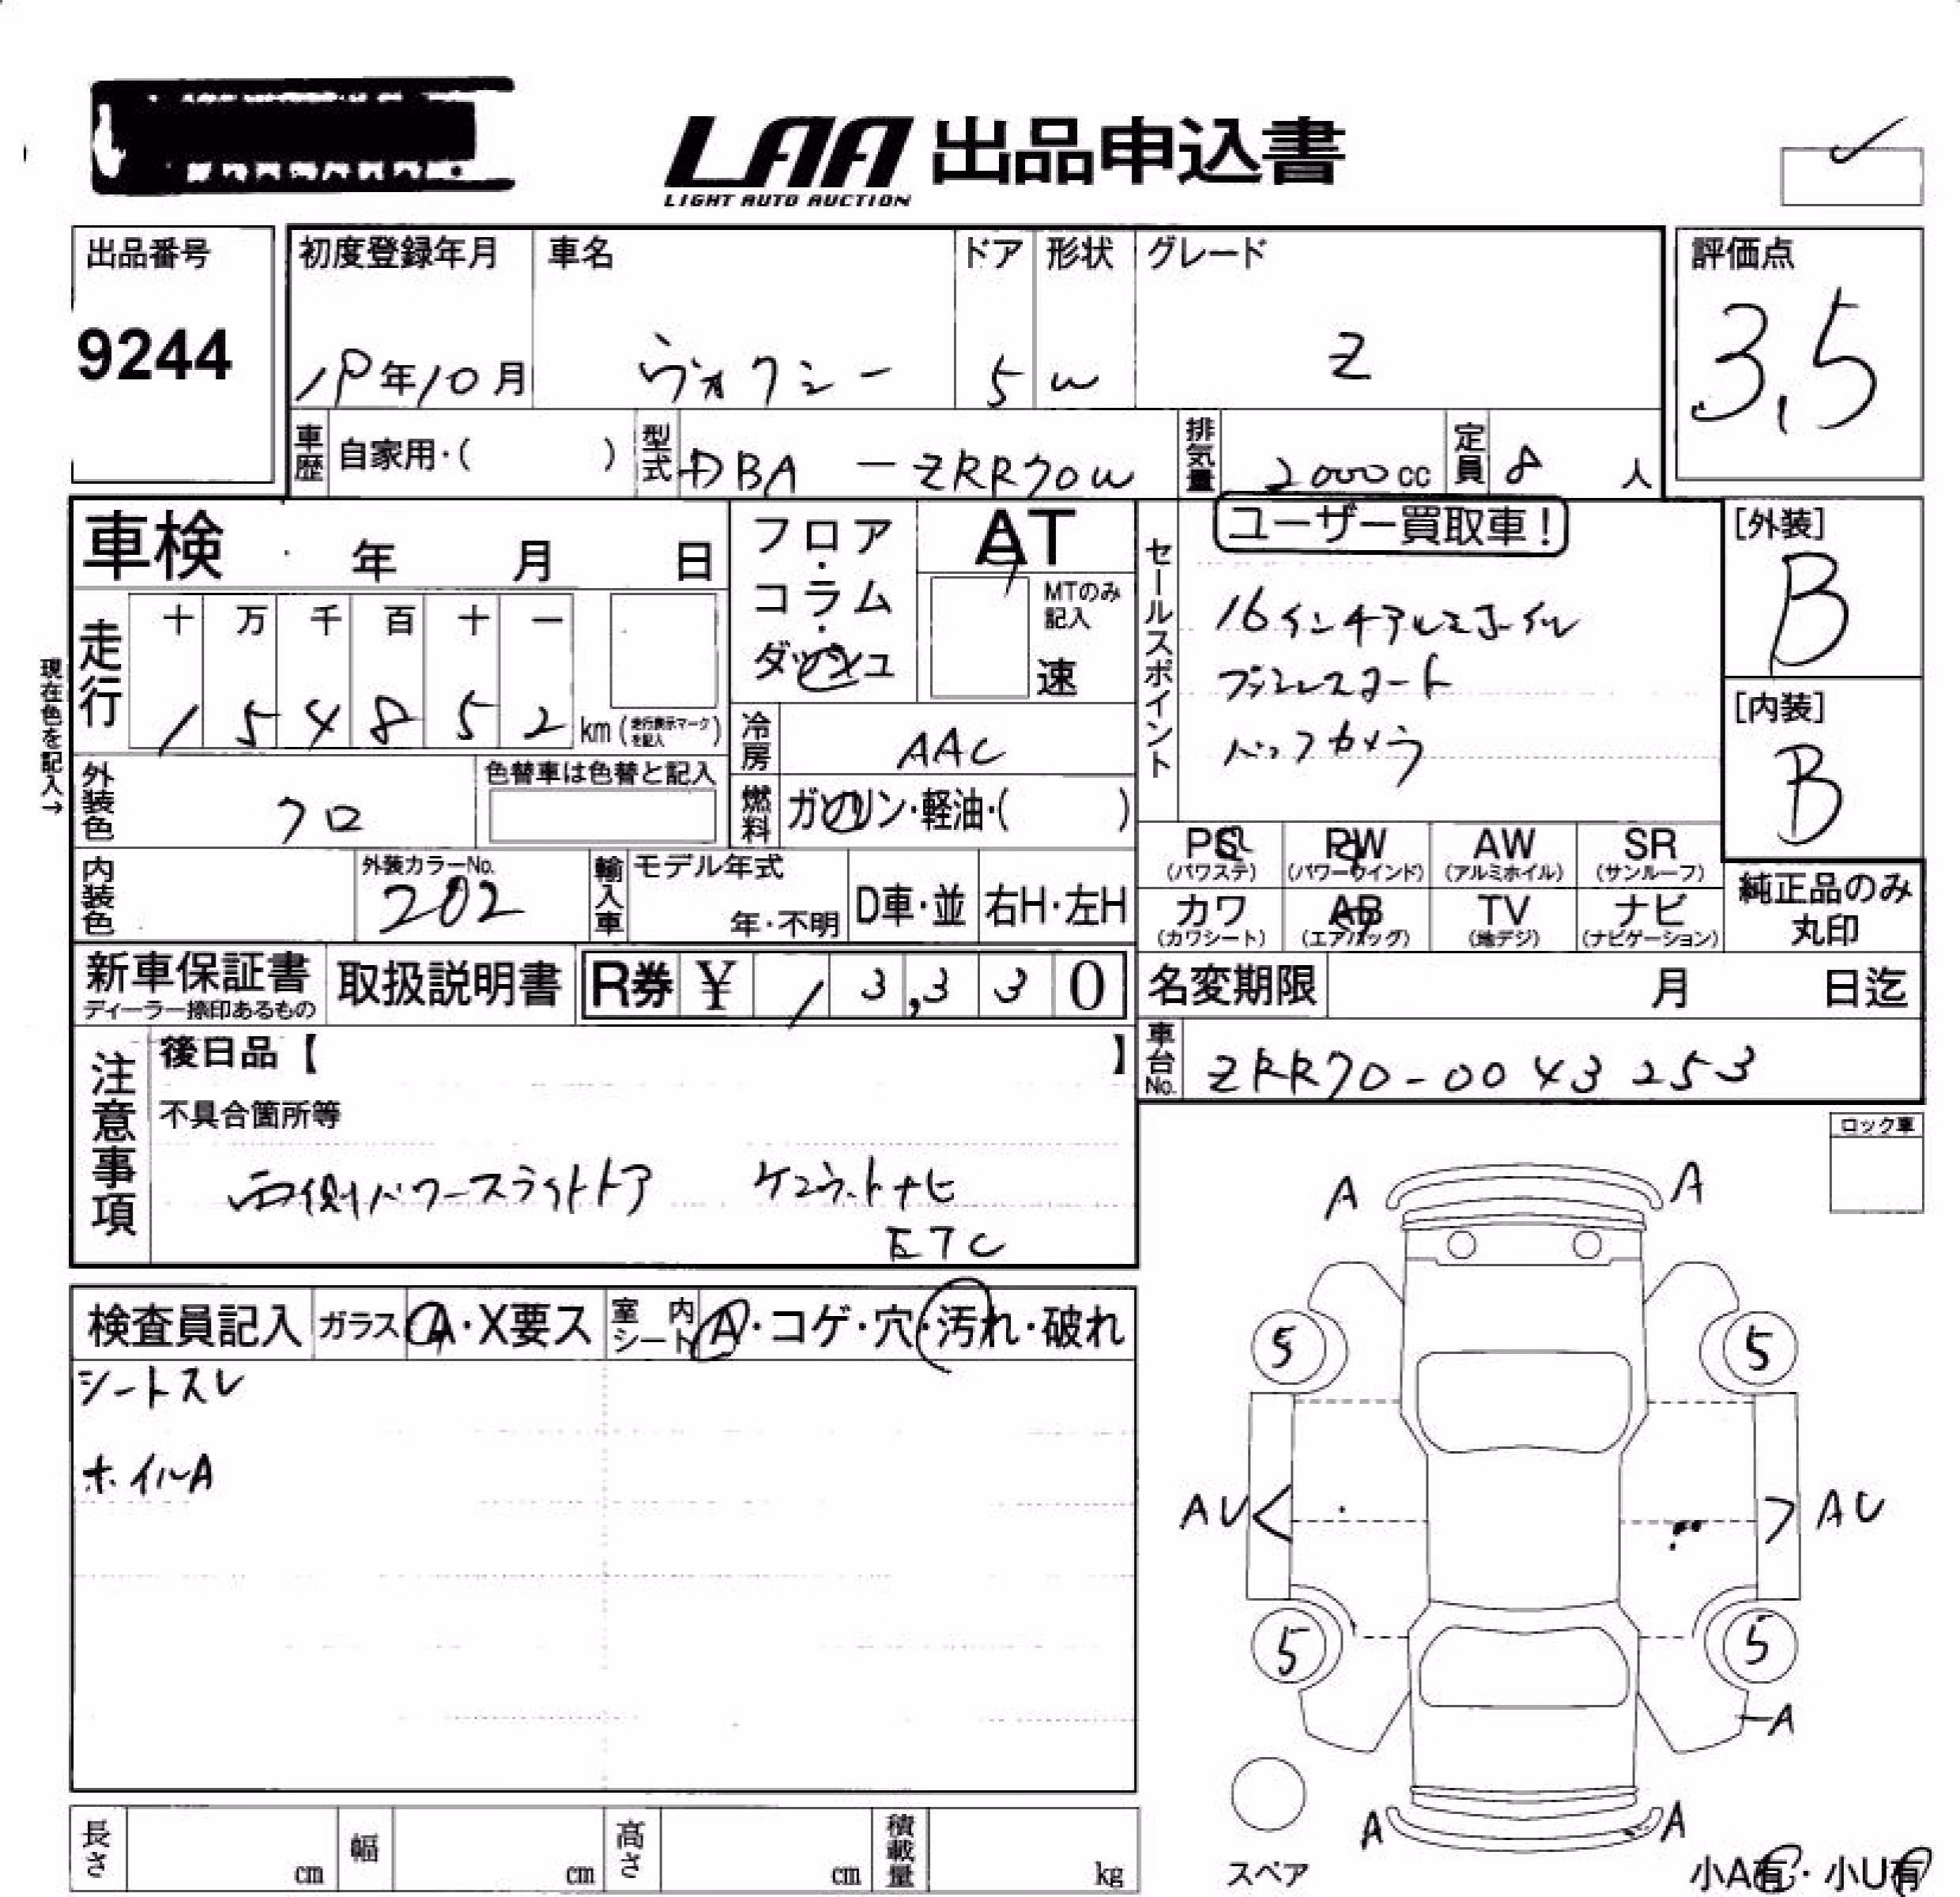 LAA 出品申込書
LIGHT AUTO AUCTION
出品番号
9244
初度登録年月
19年10月
車名
ヴォクシー
ドア
5
形状
W
グレード
Z
評価点
3.5
車歴 自家用・( )
型式 DBA - ZRR70W
排気量 2000cc
定員 8人
車検 年 月 日
フロア・コラム・ダッシュ
AT
MTのみ記入
速
現在色を記入→
走行 十 万 千 百 十 一
1 5 4 8 5 2 km (走行表示マークを記入)
冷房 AAC
燃料 ガソリン・軽油・( )
外装色 クロ
色替車は色替と記入
内装色
外装カラーNo.
202
輸入車 モデル年式
年・不明
D車・並
右H・左H
セールスポイント
ユーザー買取車!
16インチアルミホイル
プライバシーガラス
バックカメラ
[外装]
B
[内装]
B
PS (パワステ)
PW (パワーウインド)
AW (アルミホイル)
SR (サンルーフ)
カワ (カワシート)
AB (エアバッグ)
TV (地デジ)
ナビ (ナビゲーション)
純正品のみ丸印
新車保証書
ディーラー捺印あるもの
取扱説明書
R券 ¥ 1 3,3 3 0
名変期限 月 日迄
車台No. ZRR70-0043253
注意事項
後日品【 】
不具合箇所等
両側パワースライドドア ケンウッドナビ
ETC
ロック車
検査員記入
ガラス A・X要ス
室内シート A・コゲ・穴・汚れ・破れ
シートスレ
ホイルA
A A
5 5
AU AU
5 5
A
A A
スペア
小A有・小U有
長さ cm
幅 cm
高さ cm
積載量 kg